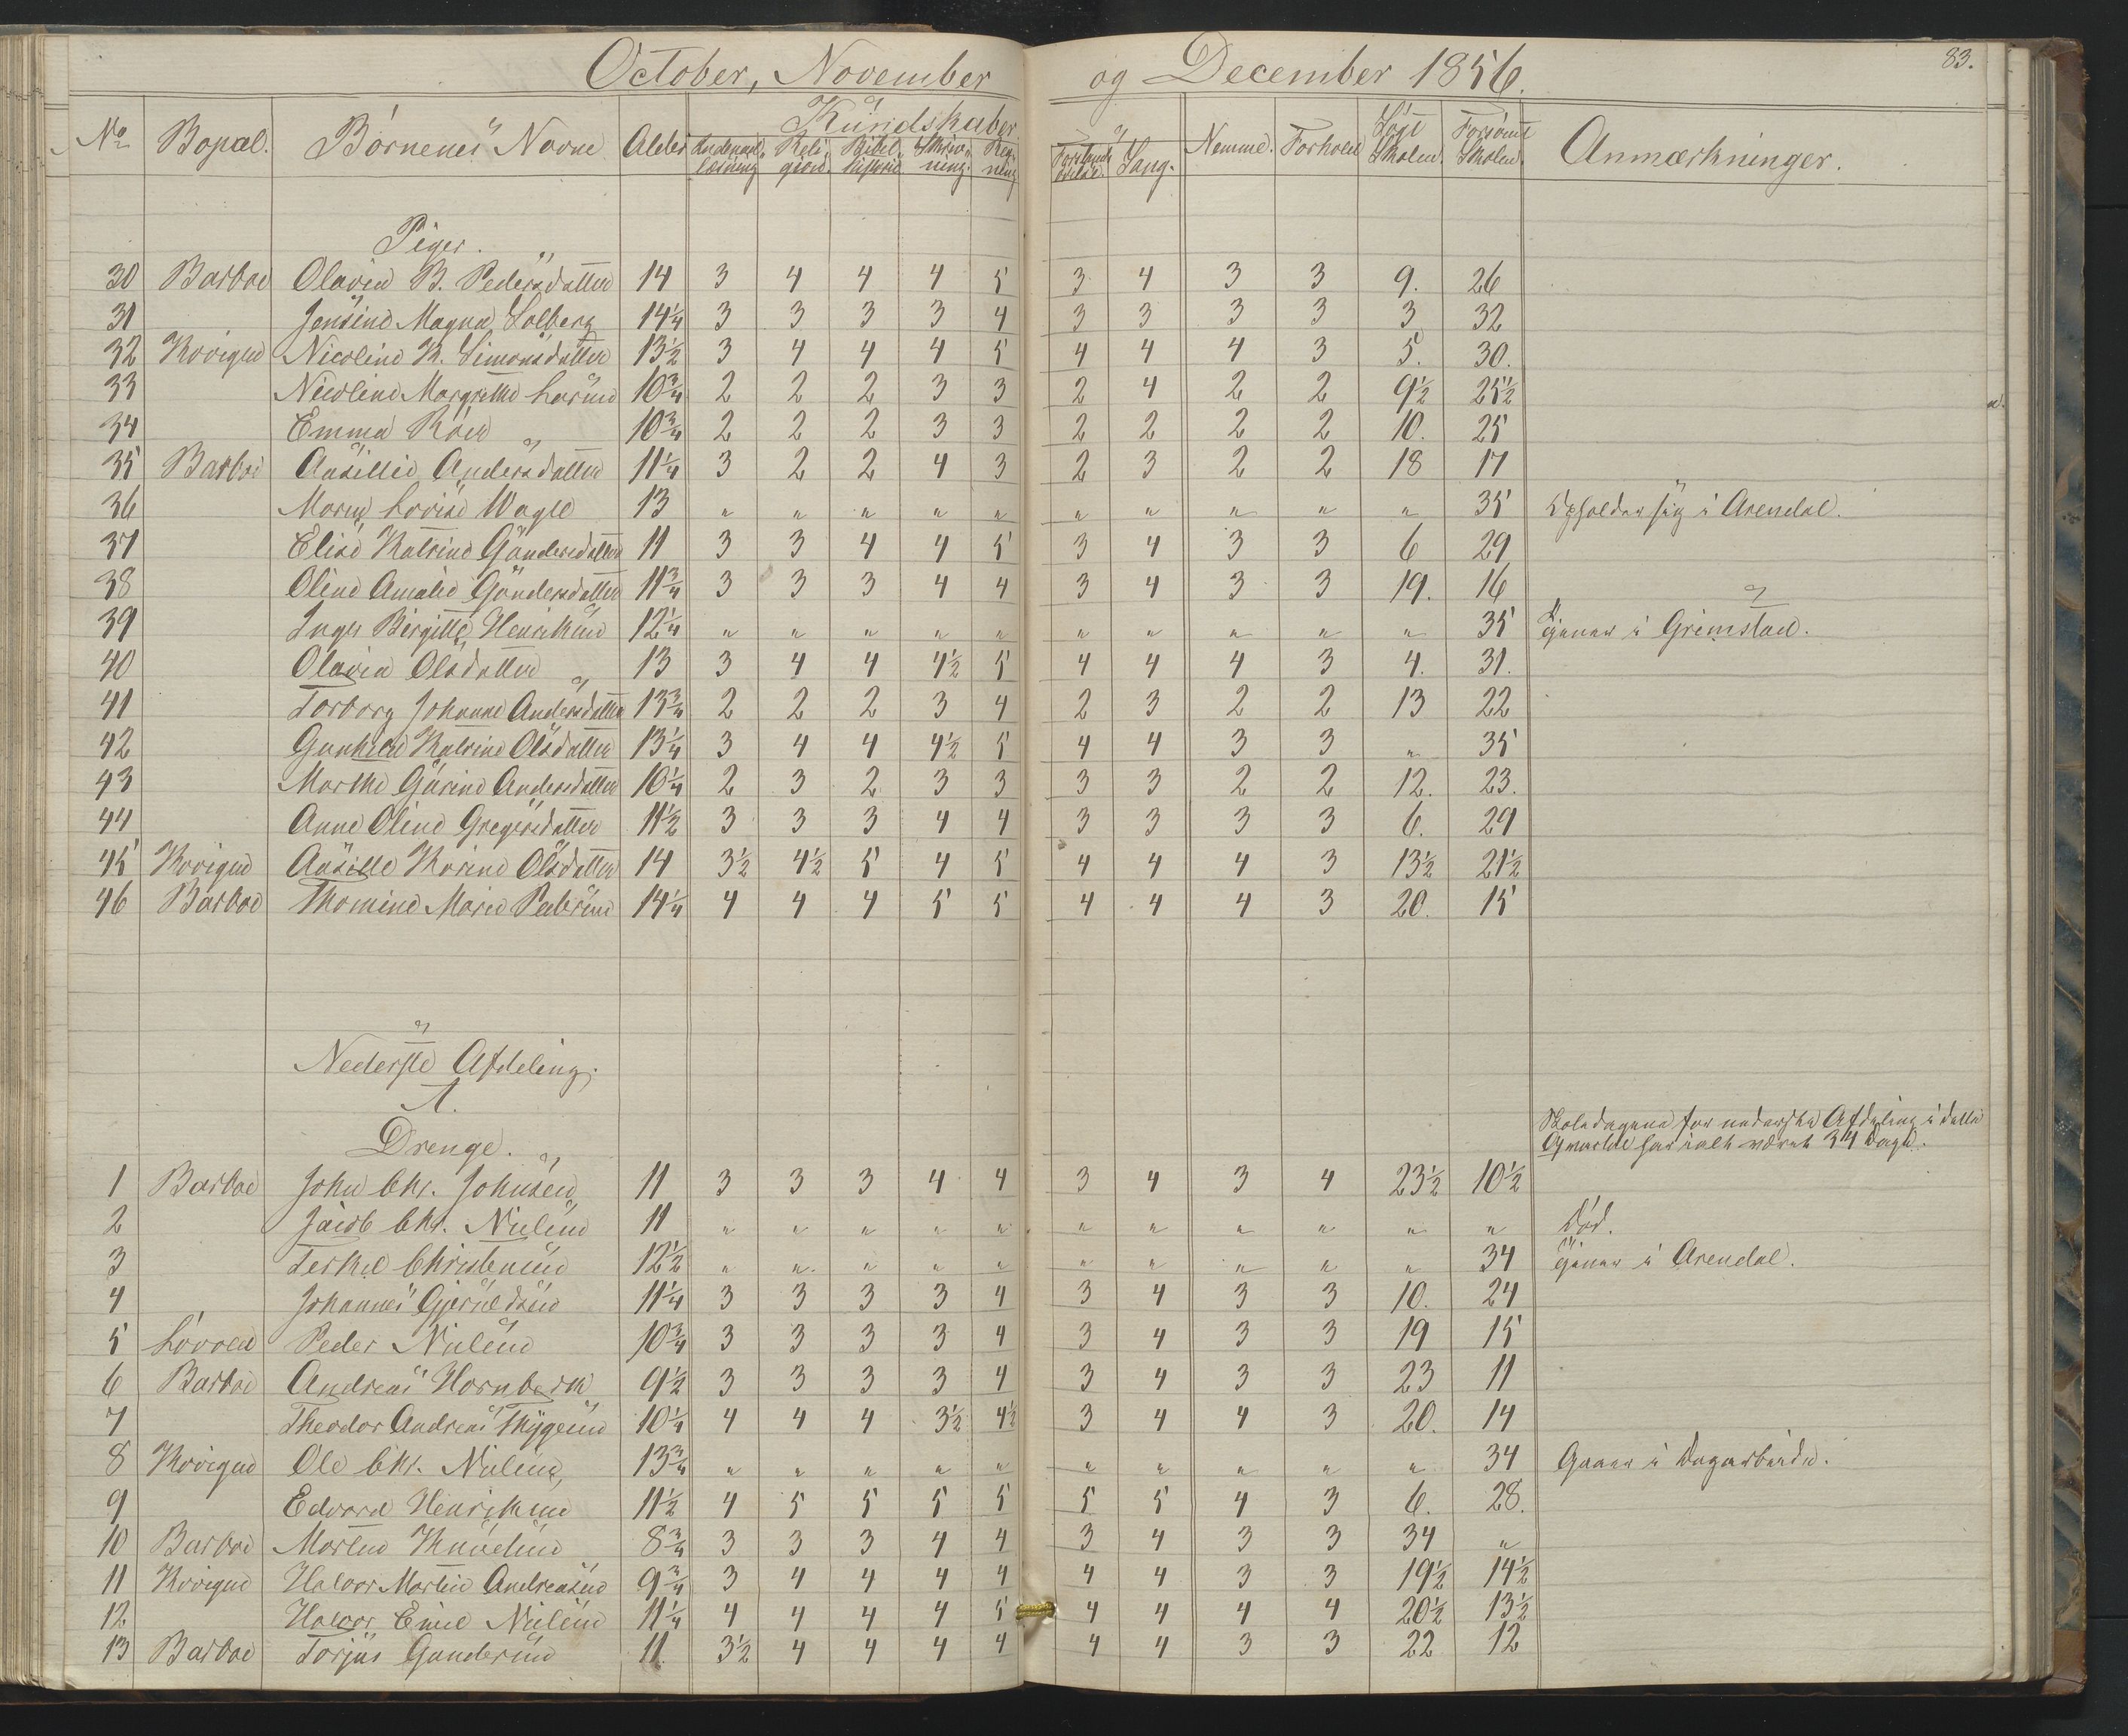 October, November og December 1856.
83.
No Bopæl. Børnenes Navne Alder Kundskaber Nemme. Forhold Søgt Skolen. Forsømt Skolen. Anmærkninger.
Indenadslæsning Religion. Bibelhistorie Skrivning. Regning Forstandsøvelse. Sang.
Piger.
30 Barboe Olavia B. Pedersdatter 14 3 4 4 4 5 3 4 3 3 9. 26
31 Jensine Magna Solberg 14¼ 3 3 3 3 4 3 3 3 3 3 32
32 Krøigne Nicoline K. Simonsdatter 13½ 3 4 4 4 5 4 4 4 3 5. 30.
33 Nicoline Margrethe Larsen 10¾ 2 2 2 3 3 2 4 2 2 9½ 25½
34 Emma 10¾ 2 2 2 3 3 2 2 2 2 10. 25
35 Barboe Aasillie Andersdatter 11¼ 3 2 2 4 3 2 3 2 2 18 17
36 Maren Lovise Wagle 13 " " " " " " " " " " 35 Opholder sig i Arendal.
37 Elise Katrine Gundersdatter 11 3 3 4 4 5 3 4 3 3 6 29
38 Oline Amalie Gundersdatter 11¾ 3 3 3 4 4 3 4 3 3 19. 16
39 Inger Birgitte Henriksen 12¼ " " " " " " " " " " 35 Tjener i Grimstad.
40 Olavia Olsdatter 13 3 4 4 4½ 5 4 4 4 3 4. 31.
41 Torborg Johanne Andersdatter 13¾ 2 2 2 3 4 2 3 2 2 13 22
42 Gunhild Katrine Olsdatter 13¼ 3 4 4 4½ 5 4 4 3 3 " 35
43 Marthe Gurine Andersdatter 10¼ 2 3 2 3 3 3 3 2 2 12. 23.
44 Anne Oline Gregersdatter 11½ 3 3 3 4 4 3 3 3 3 6. 29
45 Krøigne Aasille Karine Olsdatter 14 3½ 4½ 5 4 5 4 4 4 3 13½ 21½
46 Barboe Thomine Marie Pedersen 14¼ 4 4 4 5 5 4 4 4 3 20. 15
Nederste Afdeling.
A.
Drenge.
Skoledagene for nederste Afdeling i dette
Qvartal har ialt været 34 Dage.
1 Barboe John Chr. Johnsen 11 3 3 3 4 4 3 4 3 4 23½ 10½
2 Jacob Chr. Nielsen 11 " " " " " " " " " " " Død.
3 Terkel Christensen 12½ " " " " " " " " " " 34 Tjener i Arendal.
4 Johannes Gjeruldsen 11¼ 3 3 3 3 4 3 4 3 3 10. 24
5 Peder Nielsen 10¾ 3 3 3 3 4 3 4 3 3 19 15
6 Barboe Andreas Hornbeck 9½ 3 3 3 3 4 3 4 3 3 23 11
7 Theodor Andreas Thygesen 10¼ 4 4 4 3½ 4½ 3 4 4 3 20. 14
8 Krøigne Ole Chr. Nielsen 13¾ " " " " " " " " " " 34 Gaaer i Dagarbeide.
9 Edvard Henriksen 11½ 4 5 5 5 5 5 5 4 3 6. 28.
10 Barboe Morten Knudsen 8¾ 3 3 3 4 4 3 4 3 3 34 "
11 Krøigne Halvor Martin Andreasen 9¾ 3 4 4 4 4 4 4 3 3 19½ 14½
12 Halvor Emil Nielsen 11¼ 4 4 4 4 5 4 4 4 4 20½ 13½
13 Barboe Torjus Gundersen 11. 3½ 4 4 4 4 4 4 3 3 22 12